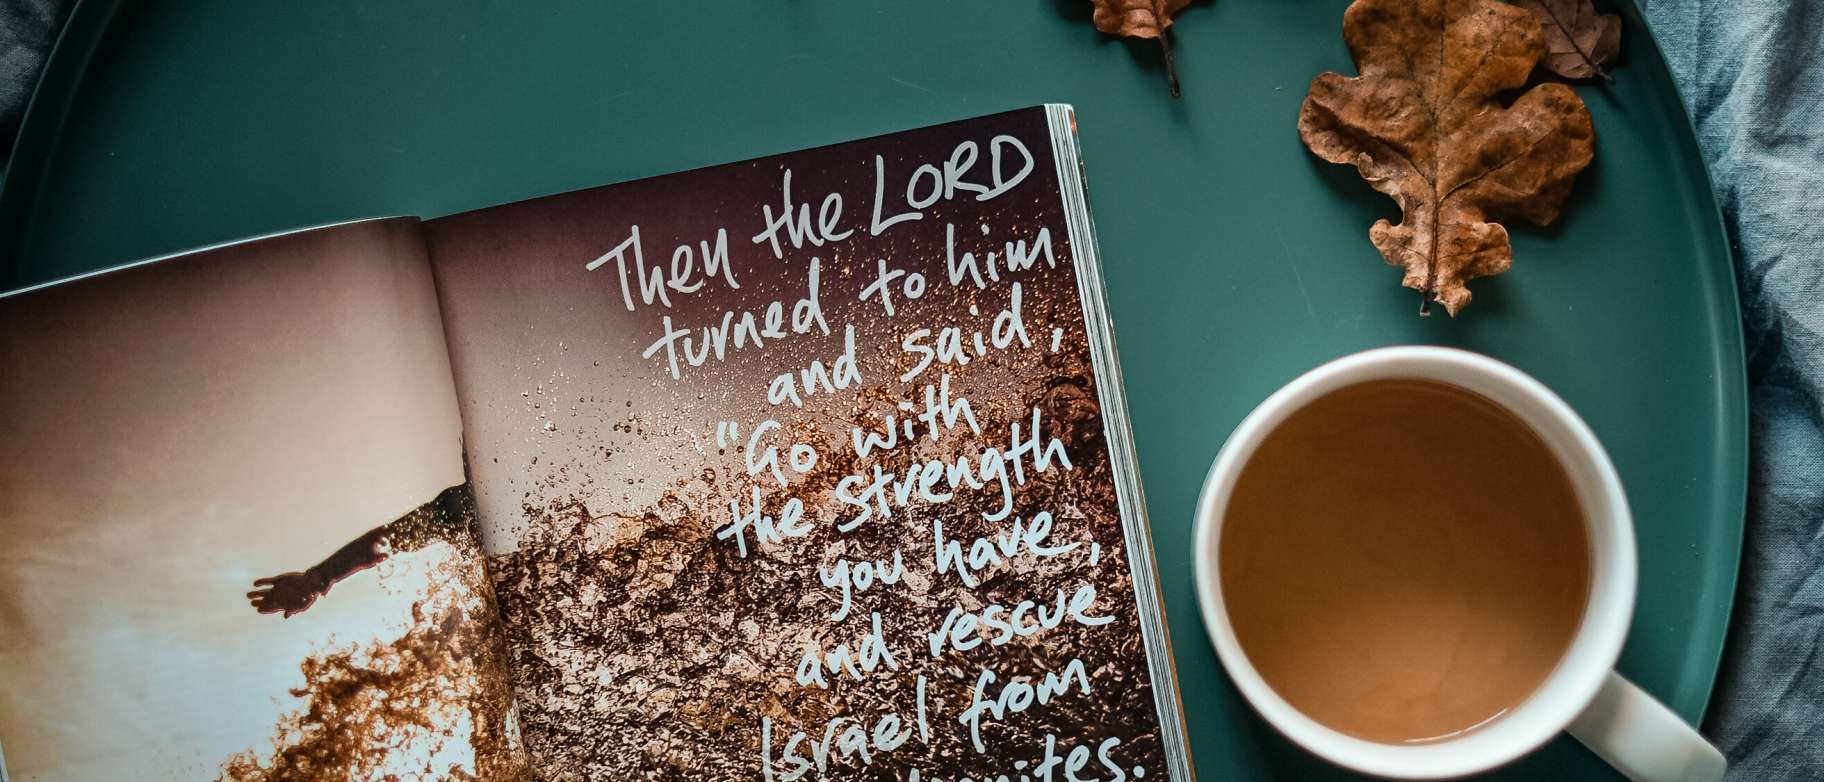 Then the LORD
turned to him
and said,
"Go with
the strength
you have,
and rescue
Israel from